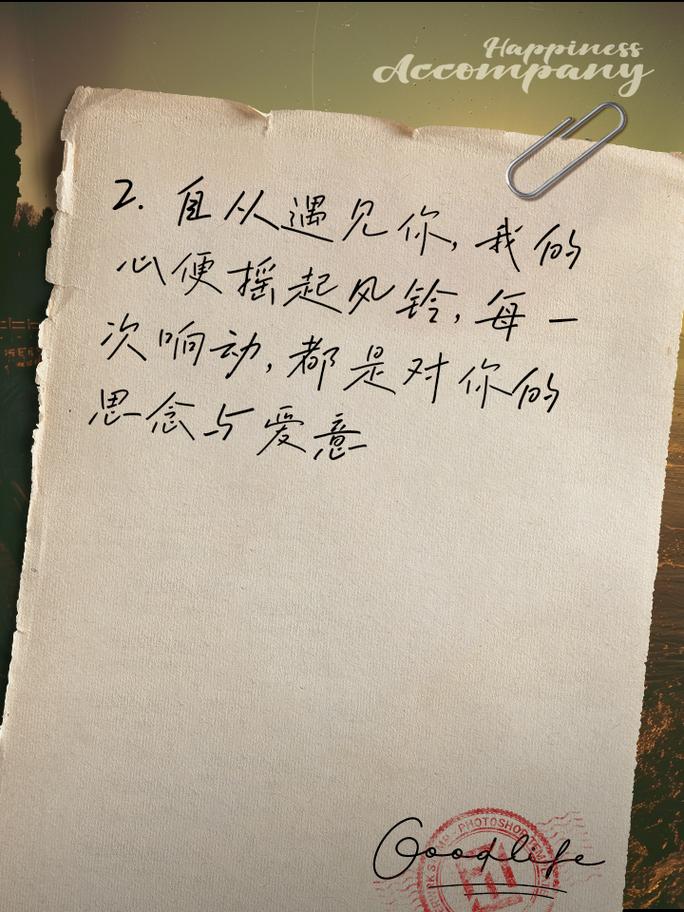 Happiness
Accompany
2. 自从遇见你,我的
心便摇起风铃,每一
次响动,都是对你的
思念与爱意
PHOTOSHOP
Goodlife